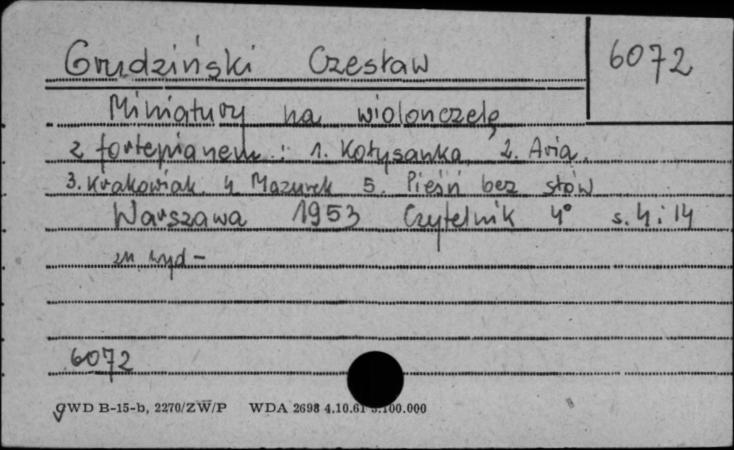 Grudziński Czesław 6072
Miniatury na wiolonczelę
z fortepianem : 1. Kołysanka, 2. Aria,
3. Krakowiak 4 Mazurek 5. Pieśń bez słów
Warszawa 1953 Czytelnik 4° s. 4 i 14
zn wyd-
6072
GWD B-15-b, 2270/ZW/P WDA 2698 4.10.61 3.100.000